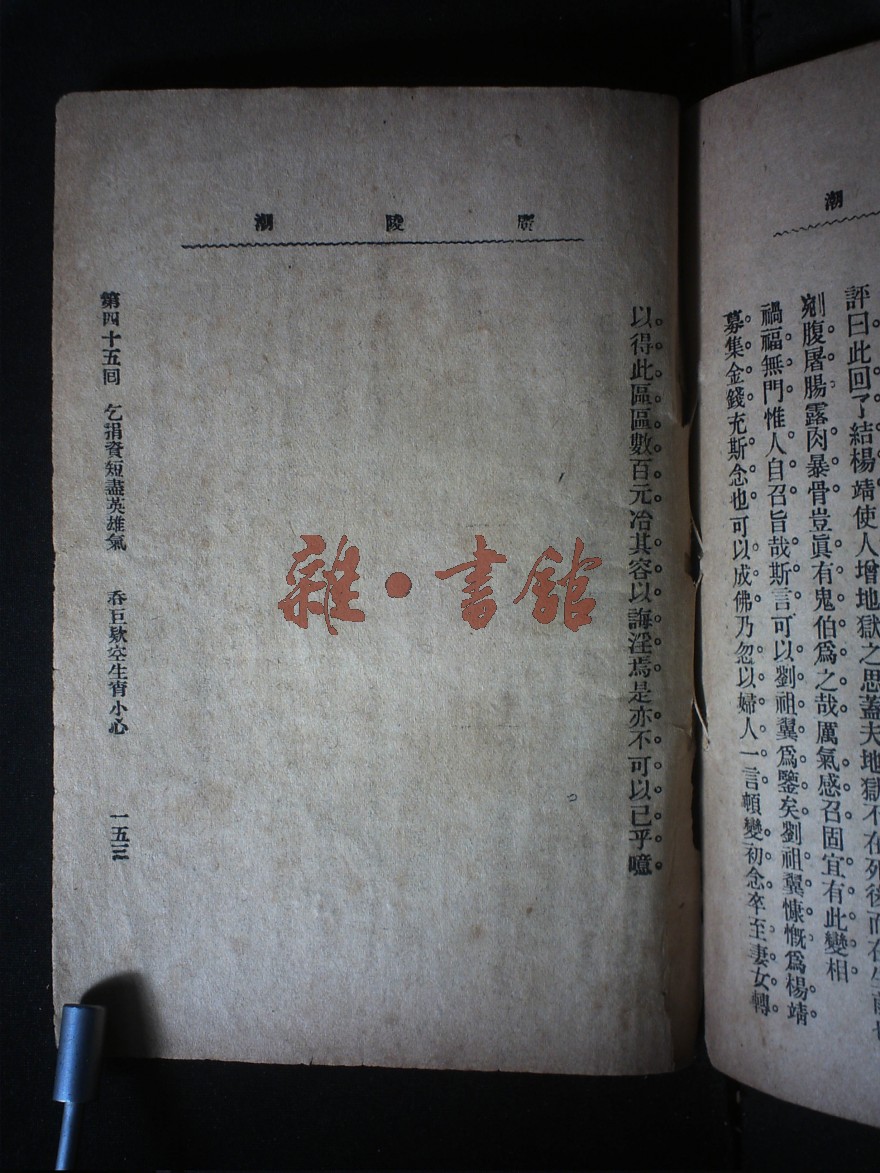 潮
評曰此回了結楊靖使人增地獄之思蓋夫地獄不在死後而在生前也
剜腹屠腸露肉暴骨豈眞有鬼伯爲之哉厲氣感召固宜有此變相
禍福無門惟人自召旨哉斯言可以劉祖翼爲鑒矣劉祖翼慷慨爲楊靖
募集金錢充斯念也可以成佛乃忽以婦人一言頓變初念卒至妻女轉
廣陵潮
以得此區區數百元冶其容以誨淫焉是亦不可以已乎噫
第四十五回 乞捐資短盡英雄氣 吞巨欵空生宵小心 一五三
雜·書館